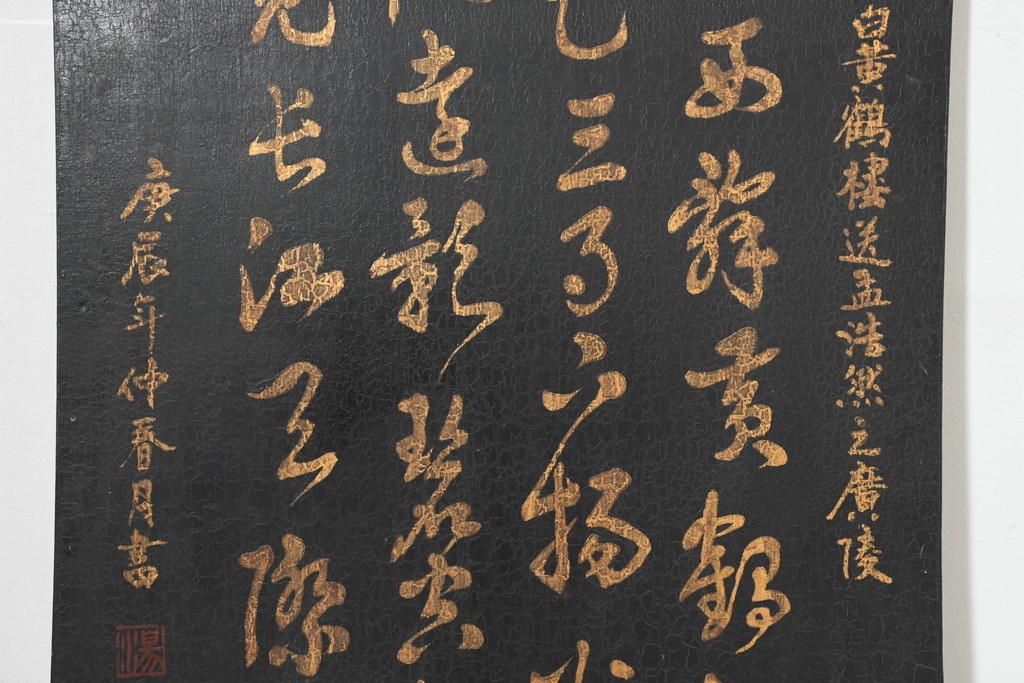 白黃鶴樓送孟浩然之廣陵
西辞黄鶴
三月下揚
遠影碧空
見長江天際
庚辰年仲春月書